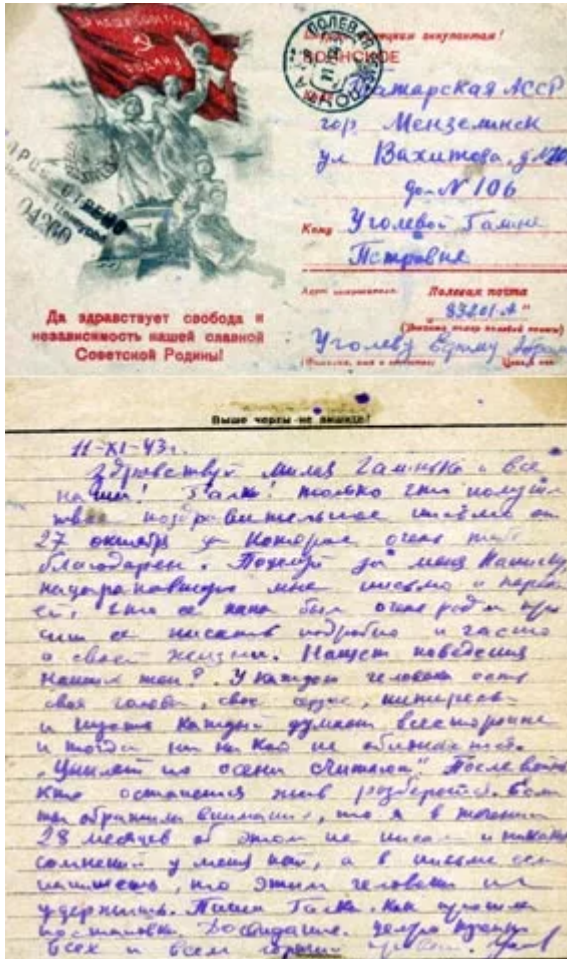 ЗА НАШУ СОВЕТСКУЮ
РОДИНУ!
ПОЛЕВАЯ
ПОЧТА
оккупантам!
ВОИНСКОЕ
Татарская АССР
гор Мензелинск
ул Вахитова,
дом № 106
Кому Уголевой Галине
Петровне
Адрес отправителя: Полевая почта
83201-А"
(Указать номер полевой почты)
Уголеву Ефиму
(Фамилия, имя и отчество)
ПРОСМОТРЕНО
Военной Цензурой
04260
Да здравствует свобода и
независимость нашей славной
Советской Родины!
Выше черты не пишите!
11-XI-43г.
Здравствуй милая Галинка и все
наши! Галка! только что получил
твое поздравительное письмо от
27 октября за которое очень тебе
благодарен. Поцелуй за меня
нацарапавшую мне письмо и
ей, что ее папа был очень рад и
ее писать подробно и часто
о своей жизни. Насчет поведения
У каждого человека есть
своя голова, свое сердце, интересы
и пусть каждый думает всесторонне
и тогда ни на кого не
"Цыплят по осени считают". После войны
кто останется жив разберется.
ты обратила внимание, что я в течении
28 месяцев об этом не писал и никаких
сомнений у меня нет, а в письме
напишешь, что этим человека не
удержишь. Пиши Галка. Как прошли
постановки. До свидания. целую
всех и всем горячий привет.